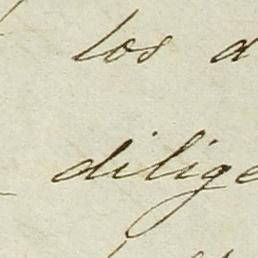 los d
dilige